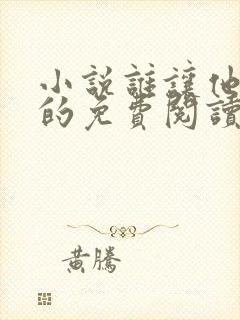 小說誰讓他
的免費閱讀
黃騰